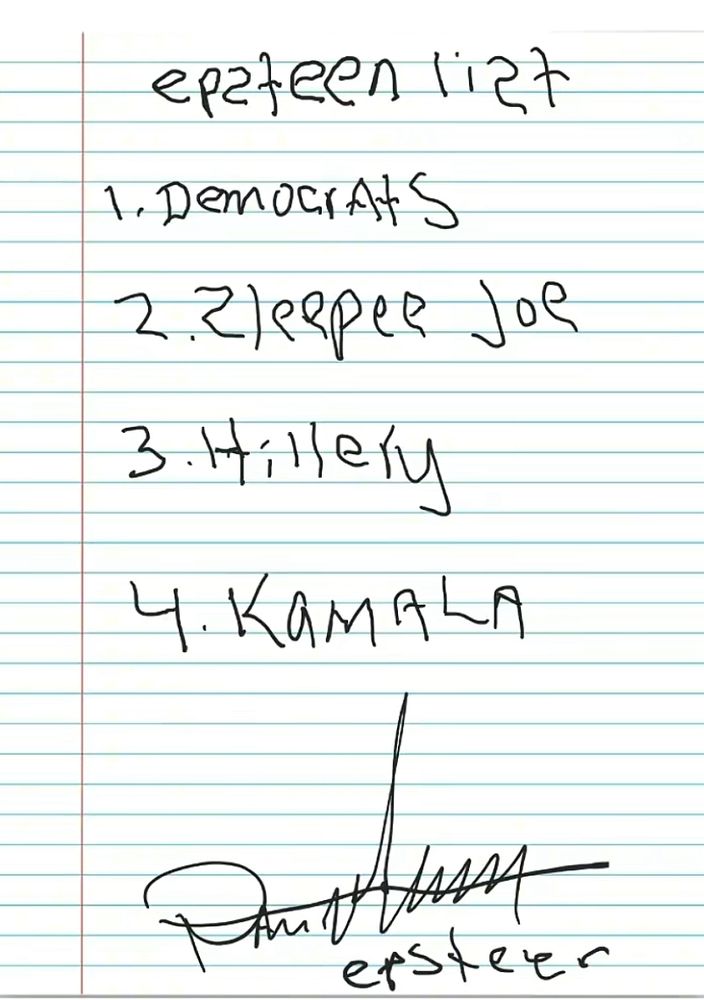 epsteen list
1. DemocrAts
2. Zleepee Joe
3. Hillery
4. KaMALA
epsteer